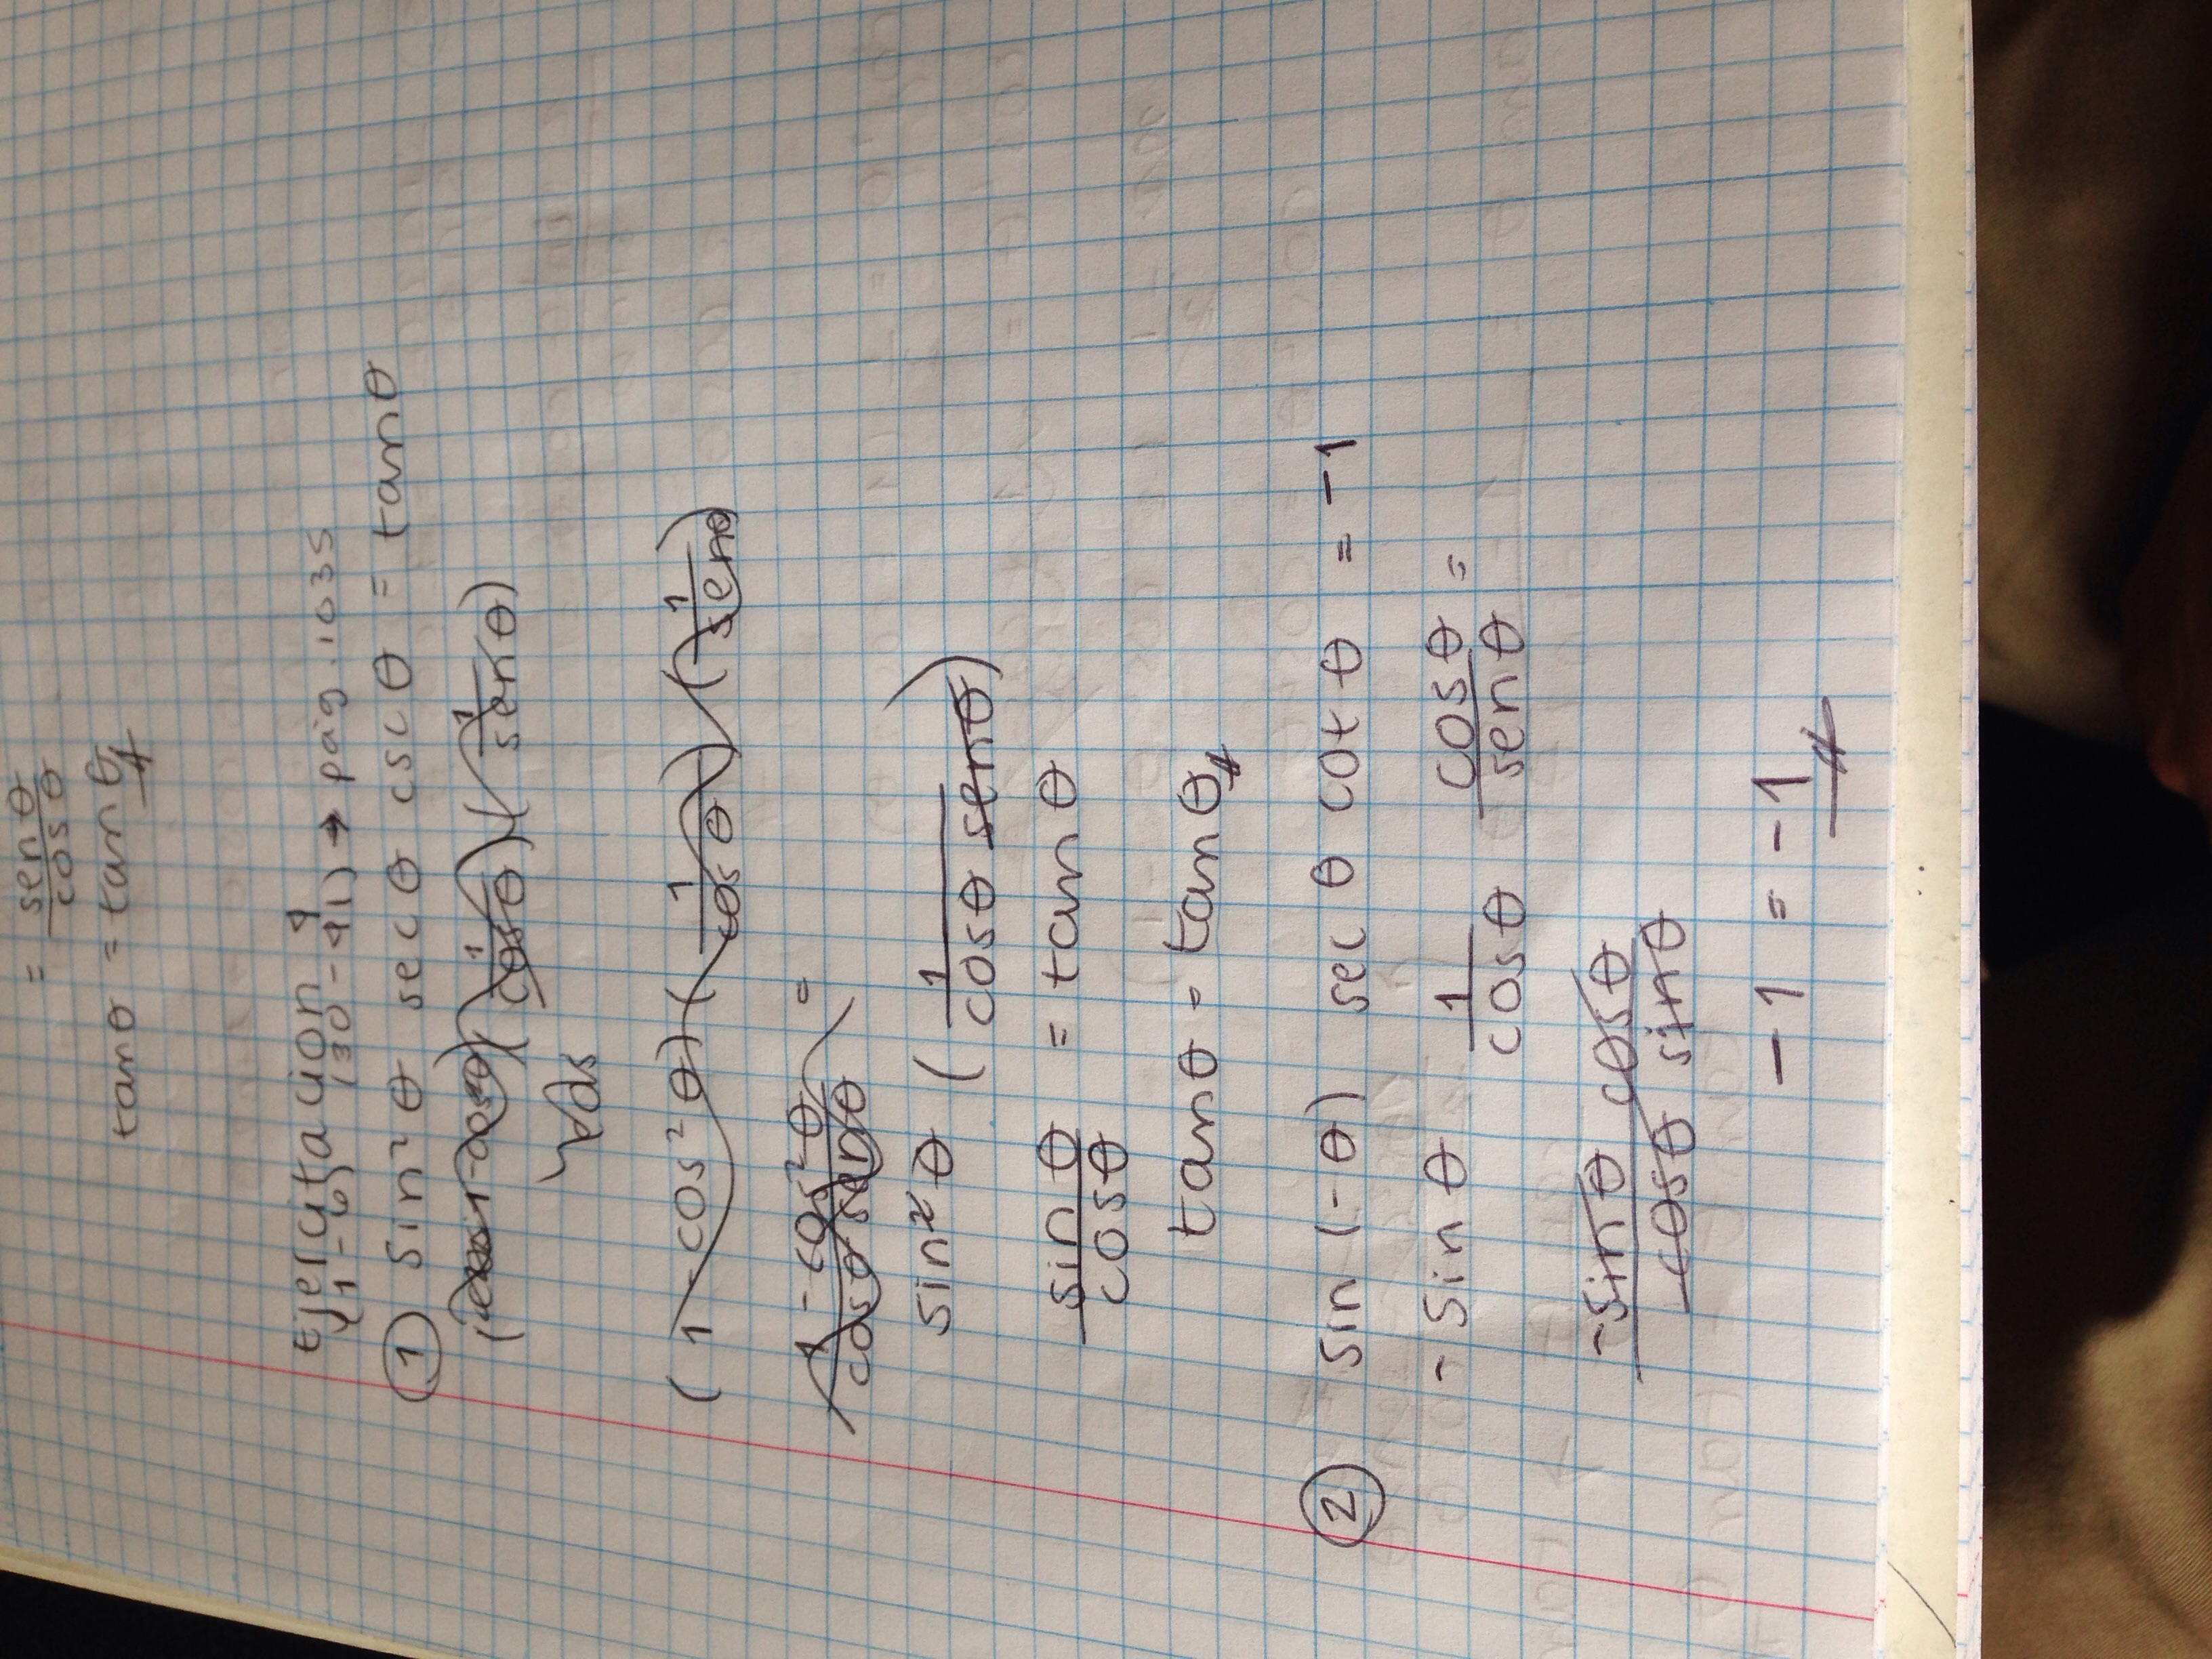 = senθ/cosθ
tanθ = tanθ
Ejercitación 9
(1-6) (30-41) → pág. 1035
① sin²θ secθ cscθ = tanθ
(1/cosθ)(1/senθ)
(1-cos²θ)(1/cosθ)(1/senθ)
1-cos²θ/cosθ senθ =
sin²θ (1/cosθ senθ)
sinθ/cosθ = tanθ
tanθ = tanθ
② sin(-θ) secθ cotθ = -1
-sinθ 1/cosθ cosθ/senθ =
-sinθ cosθ/cosθ sinθ
-1 = -1